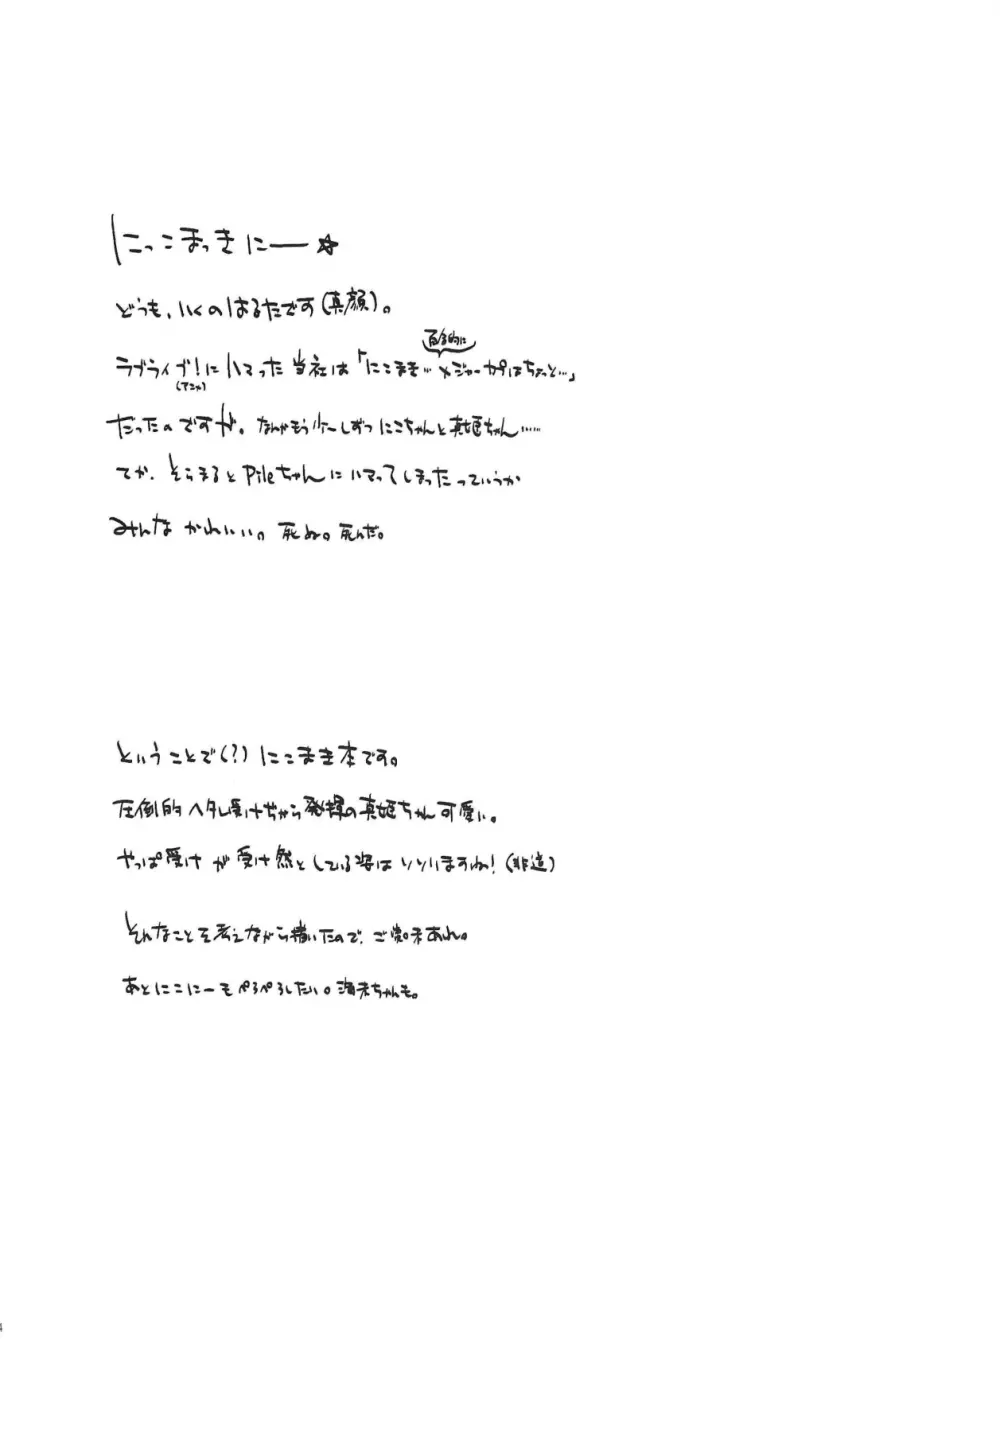 にっこまっきにー☆
どうも、いくのはるたです(真顔)。
百合的に
ラブライブ!にハマった当社は「にこまき…メジャーカプはちょっと…」
(アニメ)
だったのですが、なんかもう少ーしずつにこちゃんと真姫ちゃん……
てか、そらまるとPileちゃんにハマってしまったっていうか
みんなかわいい。死ぬ。死んだ。
ということで(?)にこまき本です。
圧倒的ヘタレ受けぢから発揮の真姫ちゃん可愛い。
やっぱ受けが受け然としている姿はいいいますね!
そんなことを考えながら描いたので、ご笑味あれ。
あとにこにーもぺろぺろしたい。海未ちゃんも。